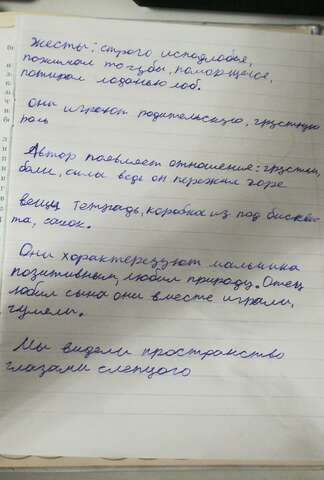 Жесты: строго исподлобья,
пожимал то губы, поморщился,
потирал ладонью лоб.
Они играют родительскую, грустную
роль
Автор поевляет отношение: грусти,
боли, силы ведь он пережил горе
вещи тетрадь, коробка из под бискви
та, сачок.
Они характерезуют мальчика
позитивным, любил природу. Отец
любил сына они вместе играли,
гумели.
Мы видели пространство
глазами слепцого